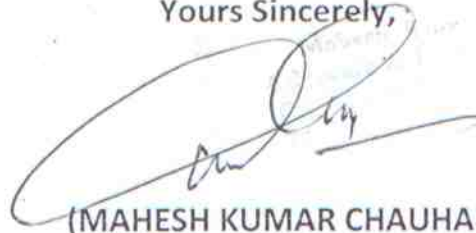 Yours Sincerely,
(MAHESH KUMAR CHAUHA